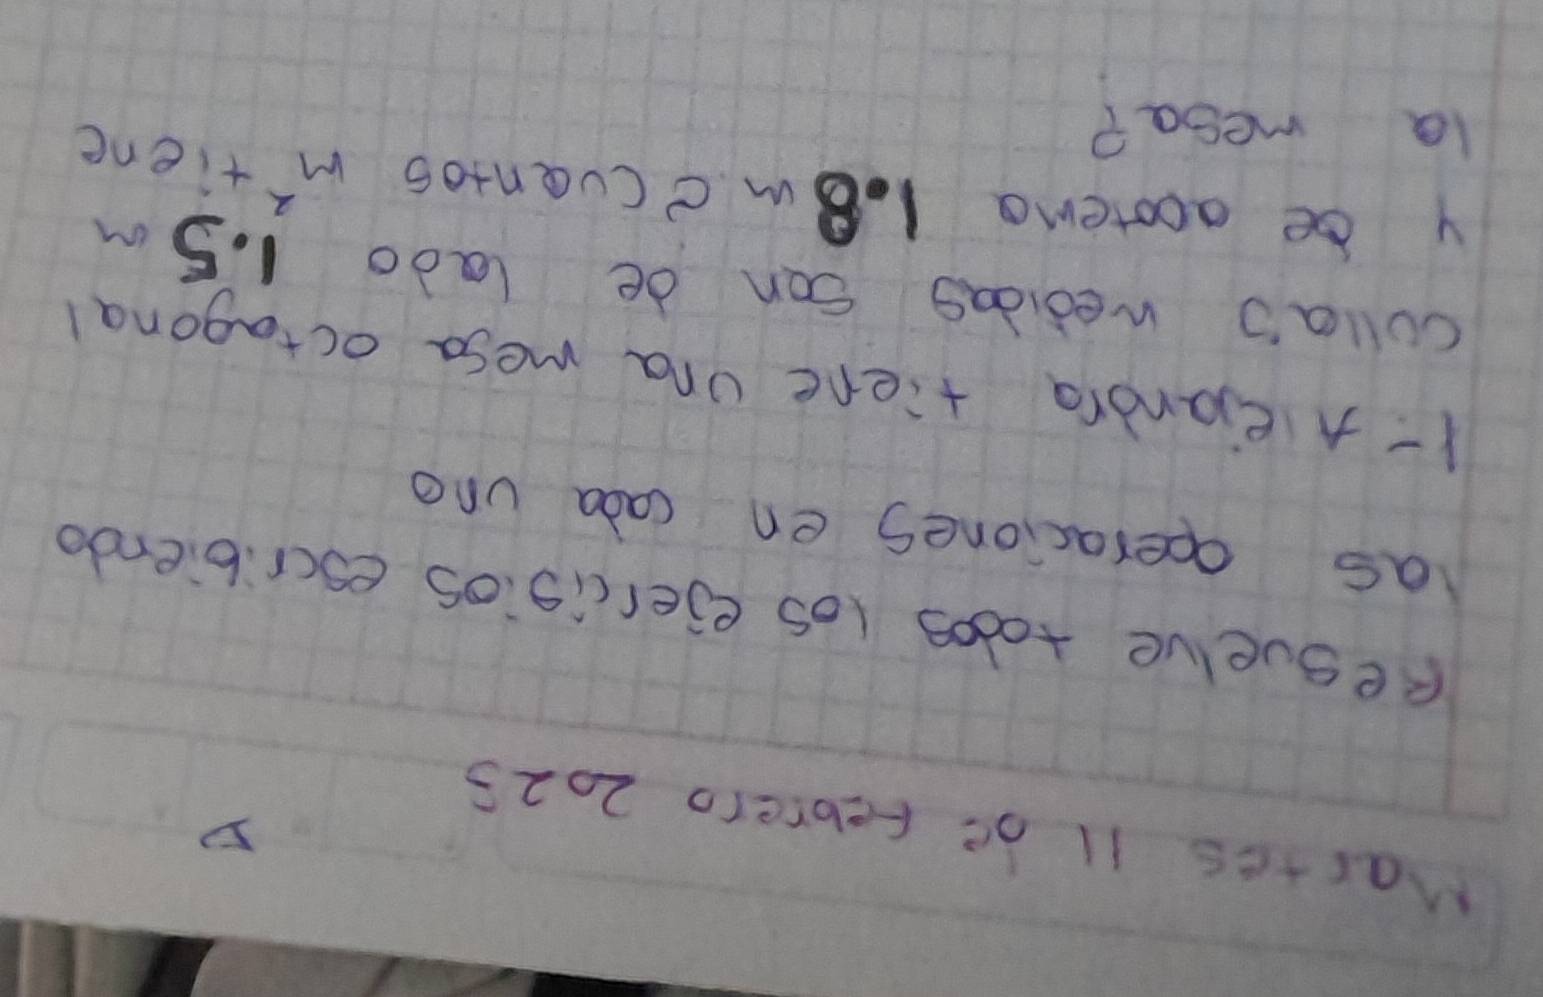 Martes 11 de Febrero 2025
Resuelve todos los ejercisios escribiendo
las operaciones en cada uno
1- Alejandra tiene una mesa octagonal
cullas medidas son de lado 1.5 m
y de apotema 1.8 m ¿Cuantos m² tiene
la mesa?